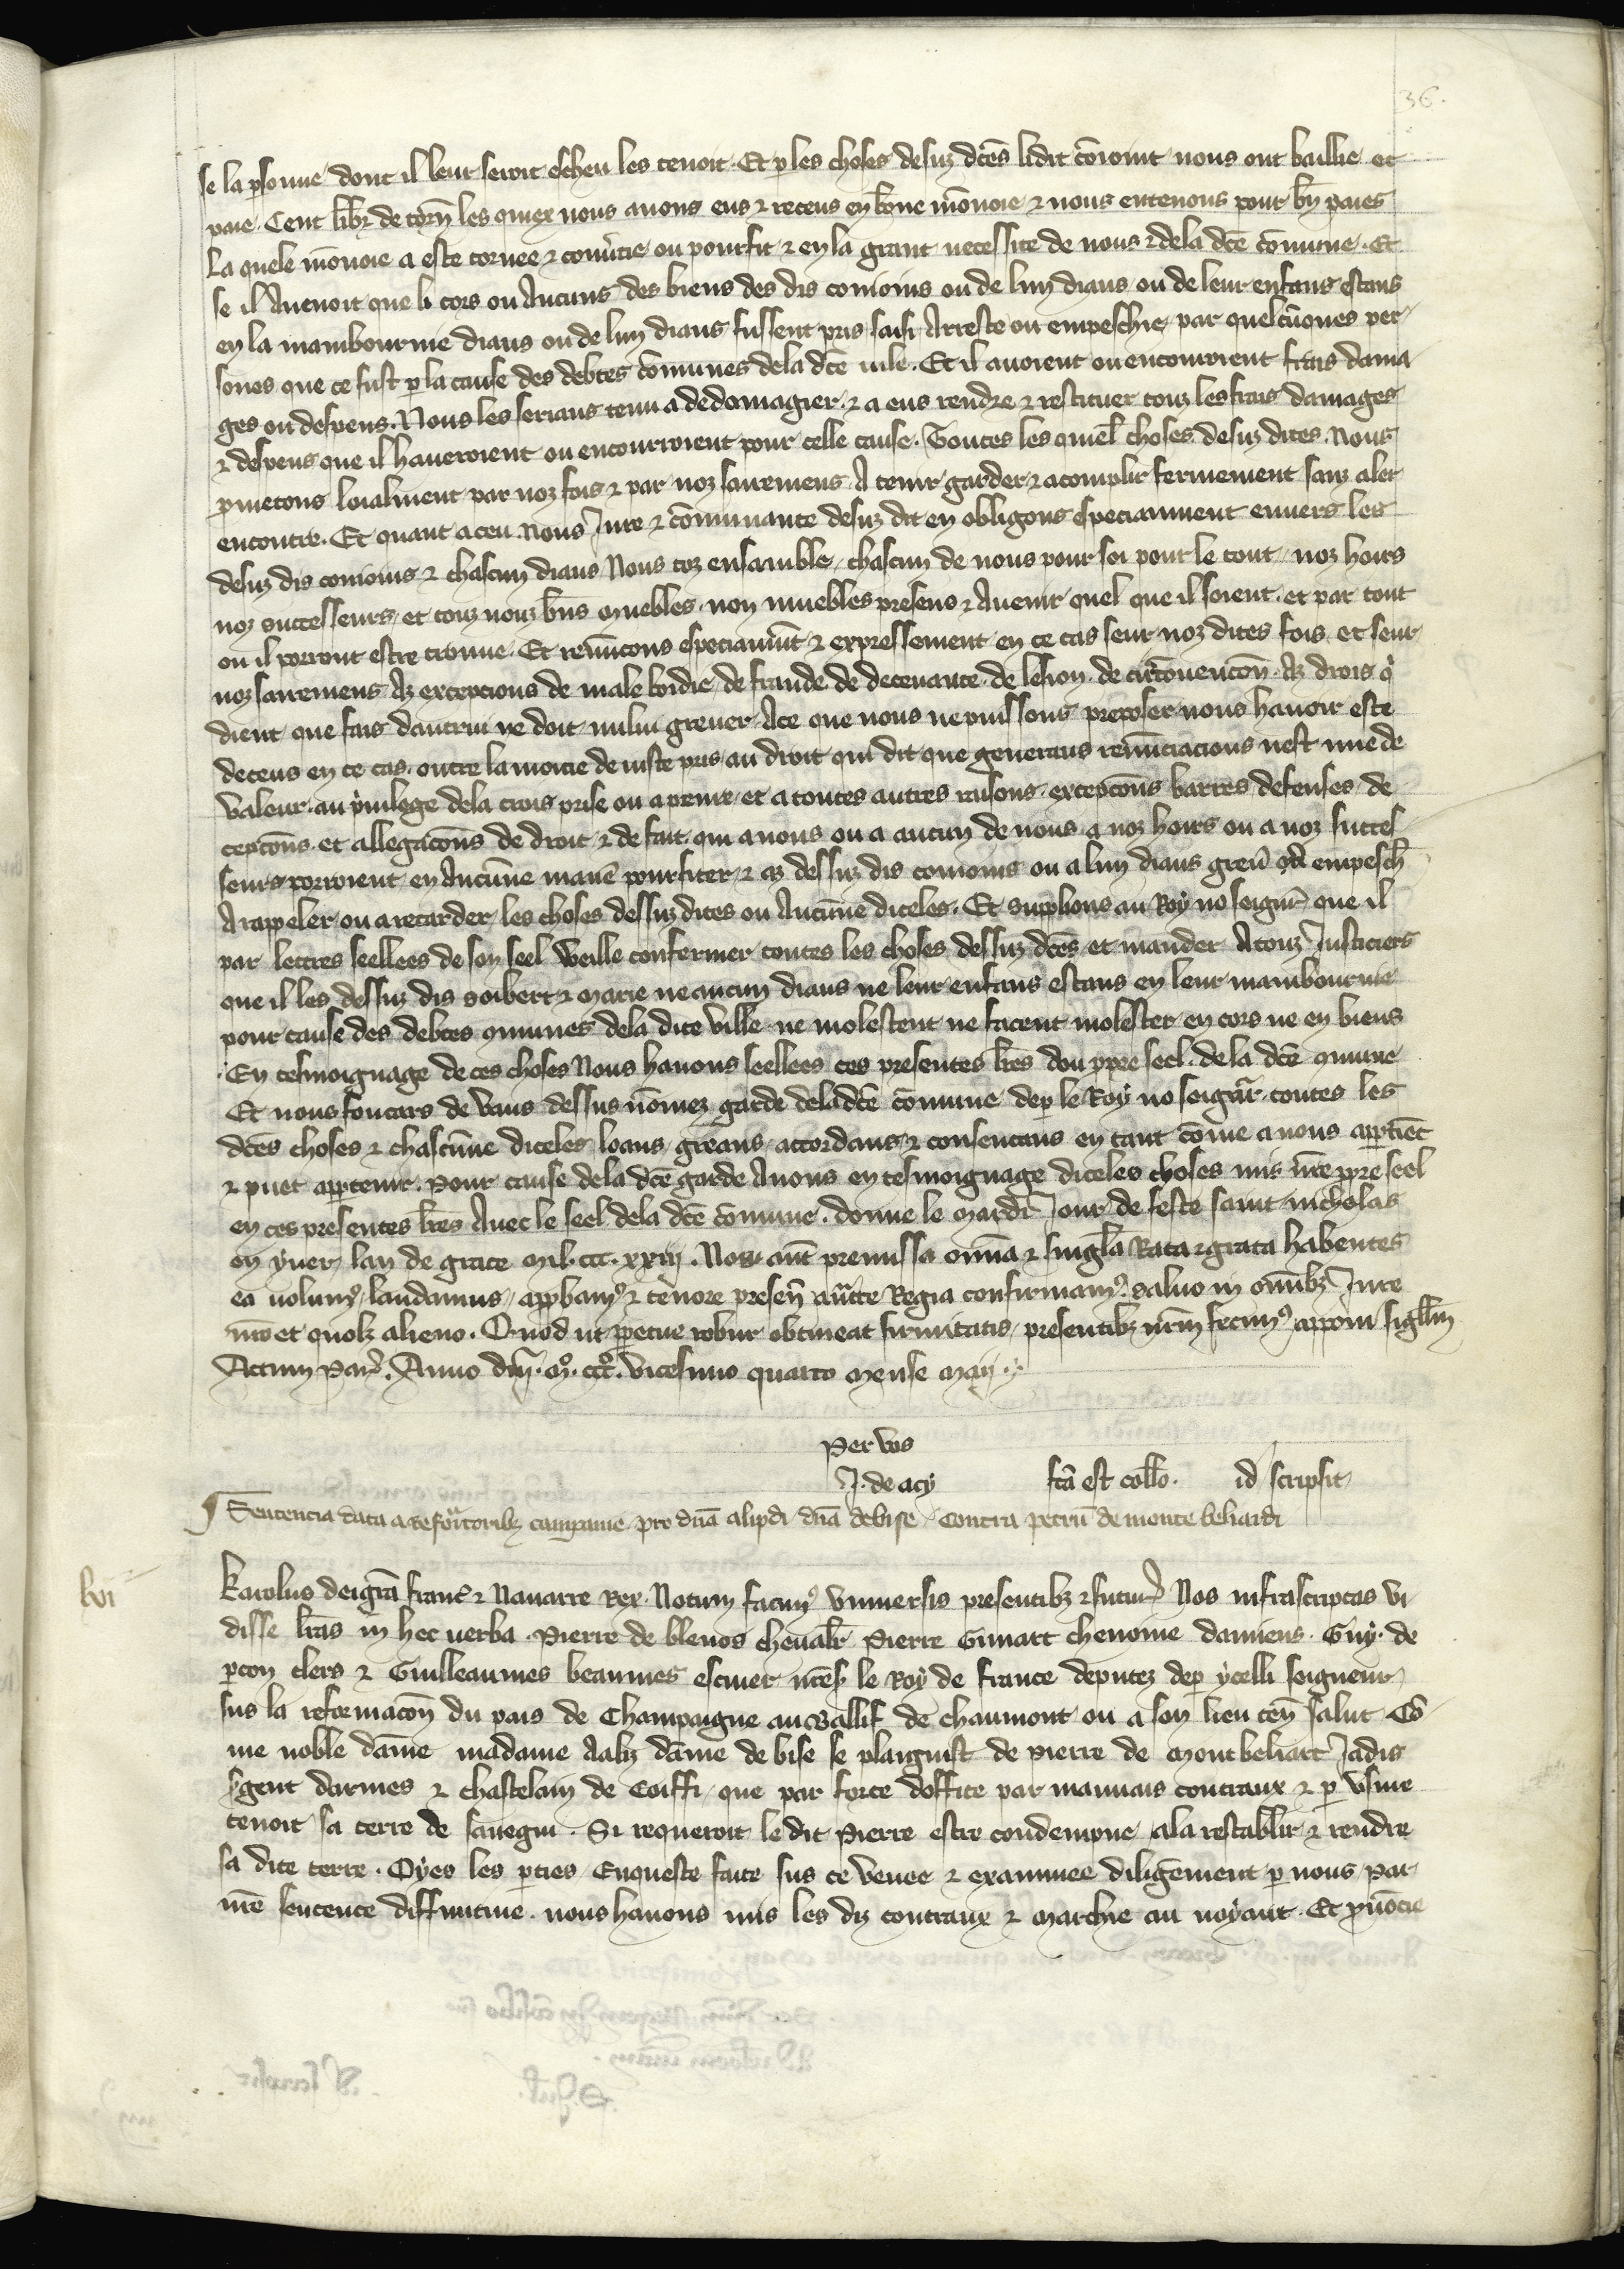 36.
se la psonne dont il leur seroit escheu les tenoit. Et p les choses desuz dctes lidit coioint nous ont baillie et
paie. Cent libr de torn les quiex nous auons eus & receus en bone monoie & nous entenons pour bn paies
La quele monoie a este tornee & conutie ou pourfit & en la grant necessite de nous & dela dce comune. Et
se il Auenoit que li cors ou Aucuns des biens des dis conioins ou de lun diaus ou de leur enfans estans
en la mambournie diaus ou de lun diaus fussent pris saisi Arreste ou empeschie par quelcuques per
sones que ce fust p la cause des debtes comunes dela dce uile. Et il auoient ou encouroient frais dama
ges ou despens. Nous les serians tenu a dedomagier & a eus rendre & restituer touz les frais damages
& despens que il haueroient ou encourroient pour celle cause. Toutes les quiel choses desuz dites. Nous
pmetons loialment par noz fois & par noz sairemens A tenir garder & acomplir fermement sanz aler
encontre. Et quant a ceu Nous Jure & comunaute desuz dit en obligons especiaument enuers les
desuz dis conioins & chascun diaus Nous toz ensamble, chascun de nous pour soi pour le tout noz hoirs
noz successeurs et touz nouz bns muebles non muebles presens & Auenir quel que il soient et par tout
ou il porront estre trouue. Et renuncons especiaumt & expressement en ce cas seur noz dites fois et seur
noz sairemens Az excepcions de male boidie de fraude de deceuance de lesion de circonuencon Az drois q
dient que fais dautrui ne doit nului greuer. Ace que nous ne puissons proposer nous hauoir este
deceus en ce cas outre la moitie de iuste pris au droit qui dit que generaus renunciacions nest mie de
Valeur au priuilege dela crois prise ou a penre et a toutes autres raisons excepcons barres defenses de
cepcons et allegacons de droit & de fait qui a nous ou a aucun de nous a noz hoirs ou a noz succes
seurs porroient en Aucunne maniere pourfiter & az dessuz dis conioins ou a lun diaus greu empesch
A rappeler ou a retarder les choses dessuz dites ou Aucunne diceles. Et supplions au Roy no seignr que il
par lettres seellees de son seel Veille confermer toutes les choses dessuz dces et mander Atouz Justiciers
que il les dessuz dis soibert & marie ne aucun diaus ne leur enfans estans en leur mambournie
pour cause des debtes comunes dela dite ville ne molestent ne facent molester en cors ne en biens
En tesmoignage de ces choses Nous hauons seellees ces presentes lres dou ppre seel de la dce comune
Et nous foucars de Vaus dessus nomez garde dela dce comune dep le Roy no seignr toutes les
dces choses & chascunne diceles loans greans accordans & consentans en tant come a nous apptiet
& puet appartenir. pour cause dela dce garde Auons en tesmoignage diceles choses mis nre ppre seel
en ces presentes lres Auec le seel dela dce comune. donne le mardi Jour de feste saint nicholas
en yuer lan de grace mil. ccc. xxiij. Nos aut premissa omnia & singula Rata & grata habentes
ea uolumus laudamus appbamus & tenore presen aucte Regia confirmamus. saluo in omibz Jure
nro et quolz alieno. Quod ut ppetue robur obtineat firmitatis presentibz nrm fecimus apponi sigillm
Actum Par. Anno dni. m. ccc. vicesimo quarto mense maij.
Per vos
J. de acy fca est collo. id scripsit
Sentencia data a reformatoribz campanie pro dna alipdi dna de bise contra petru de monte beliardi
lvi
Karolus dei gra franc & Nauarre Rex. Notum facimus Vniuersis presentibz & futur Nos infrascriptas vi
disse lras in hec uerba. Pierre de blenos cheualr Pierre Gimart chenoine damiens. Guy. de
pcon clers & Guilleaumes beaumes escuier nres le Roy de france deputez dep ycelli seigneur
sus la reformacon du pais de Champaigne au Baillif de chaumont ou a son lieu ten salut Co
me noble dame madame Aalyz dame de bise se plainsist de pierre de montbeliart Jadis
sgent darmes & chastelain de Coiffi, que par force doffice par mauuais contraux & p Vsure
tenoit sa terre de sauegni. Si requeroit le dit Pierre estre condempne ala restablir & rendre
sa dite terre. Oyes les pties Enqueste faite sus ce Veuee & examinee diligement p nous par
nre sentence diffinitiue. nous hauons mis les diz contraux & marchie au noyant. Et pnocie